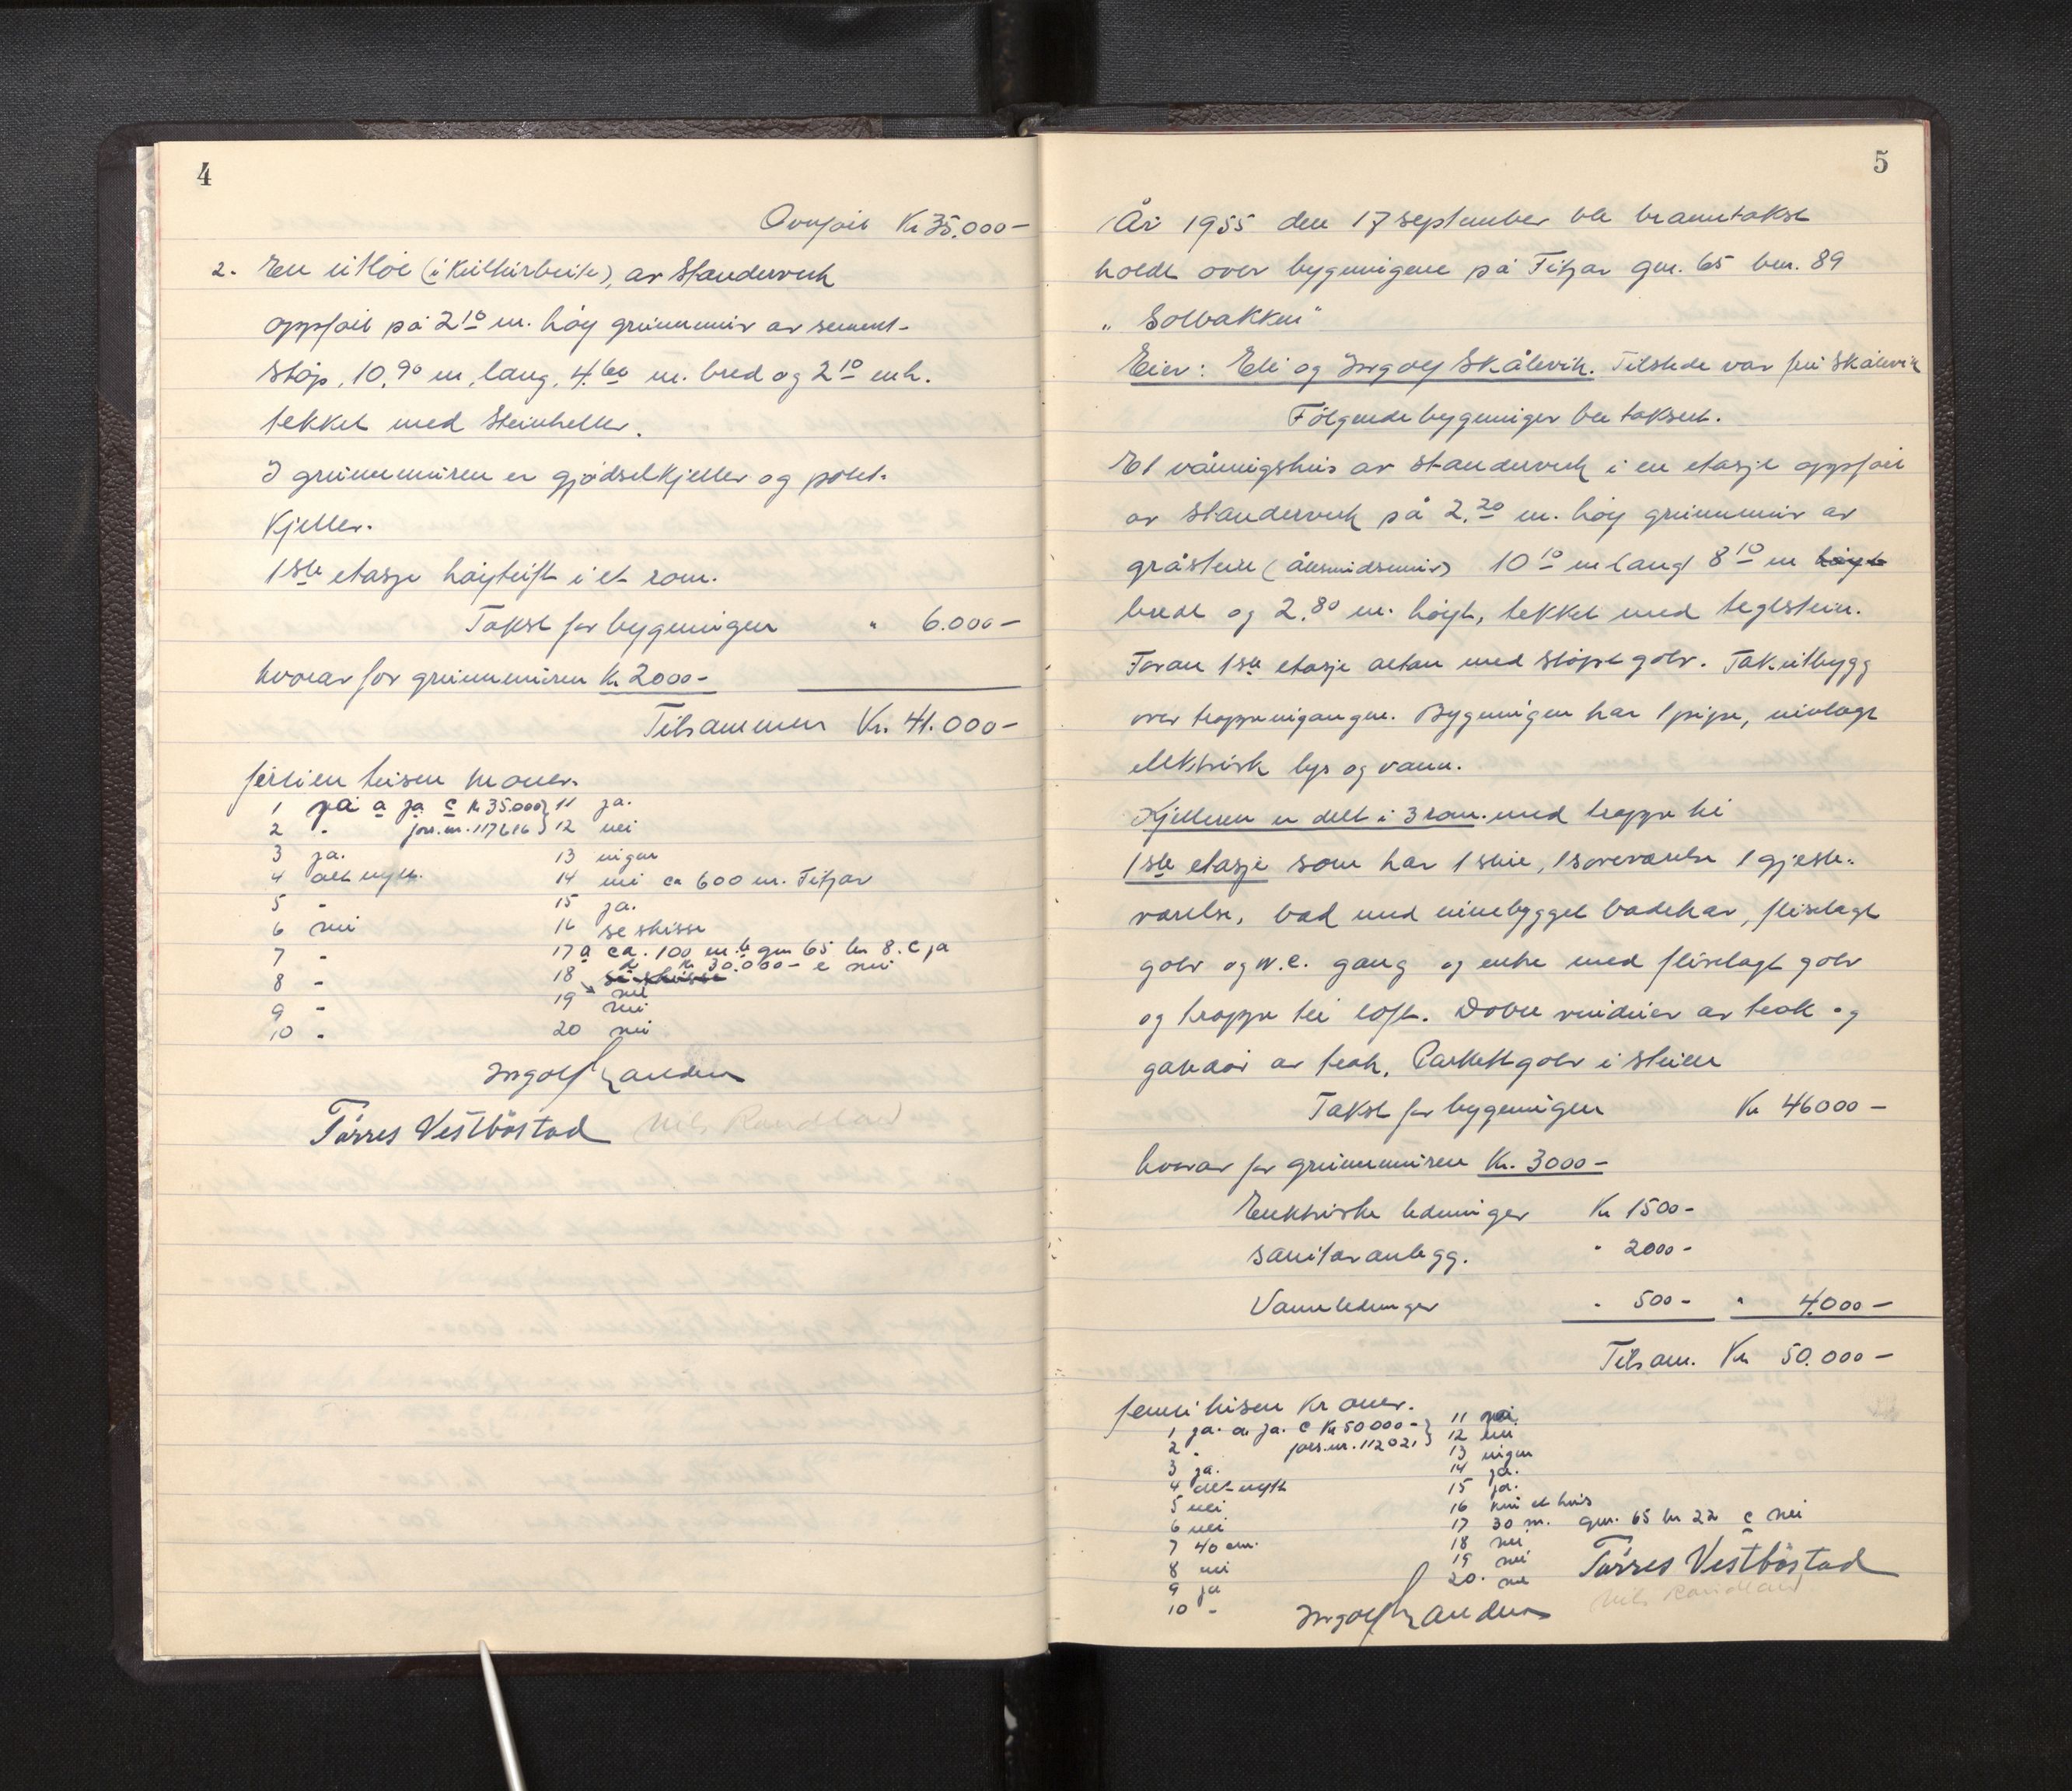 4
Overført Kr 35.000-
2. En utløe (i kulturbeite), av standerverk
oppført på 2 10 m. høy grunnmur av sement-
støp, 10,90 m. lang, 4.60 m. bred og 2 10 m h.
tekket med steinheller.
I grunnmuren er gjødselkjeller og potet-
kjeller.
1ste etasje høytrift i et rom.
Takst for bygningen " 6.000-
hvorav for grunnmuren Kr 2000-
Tilsammen Kr. 41.000-
førtien tusen kroner.
1 ja a ja c kr 35.000 } 11 ja.
2 " fors.nr. 117616 } 12 nei
3 ja. 13 ingen
4 alt nytt. 14 nei ca 600 m. Fitjar
5 - 15 ja.
6 nei 16 se skisse
7 - 17 a ca. 100 m. b gnr 65 bnr 8. c ja
d kr 30.000- e nei
8 - 18 se skisse nei
9 - 19 nei
10 - 20 nei
Ingolf Landen
Tørres Vestbøstad Nils Randland
5
År 1955 den 17 september ble branntakst
holdt over bygningene på Fitjar gnr. 65 bnr. 89
" Solbakken "
Eier: Eli og Ingolf Skålevik. Tilstede var fru Skålevik
Følgende bygninger ble taksert.
Et våningshus av standerverk i en etasje oppført
av standerverk på 2.20 m. høy grunnmur av
gråstein ( 10 10 m langt 8 10 m høyt
bredt og 2.80 m. høyt, tekket med teglstein.
Foran 1ste etasje altan med støpt golv. Takutbygg
over trappeinngangen. Bygningen har 1 pipe, innlagt
elektrisk lys og vann.
Kjelleren er delt i 3 rom. med trapp til
1ste etasje som har 1 stue, 1 soveværelse 1 gjeste-
værelse, bad med innebygget badekar, fliselagt
golv og w.c. gang og entre med fliselagt golv
og trapp til loft. Doble vinduer av teak og
gatedør av teak. Parkettgolv i stuen
Takst for bygningen Kr 46000-
hvorav for grunnmuren Kr. 3000-
Elektriske ledninger Kr 1500-
Sanitæranlegg. " 2000-
Vannledninger " 500- " 4.000-
Tilsam. Kr 50.000-
femti tusen kroner.
1 ja. a ja. c Kr 50000- } 11 nei
2 " fors.nr. 112021 } 12 nei
3 ja. 13 ingen
4 alt nytt 14 ja.
5 nei 15 ja.
6 nei 16 kun et hus
7 40 cm. 17 30 m. gnr. 65 bnr 22 c nei
8 nei 18 nei
9 ja 19 nei
10 - 20. nei
Tørres Vestbøstad
Ingolf Landen Nils Randland